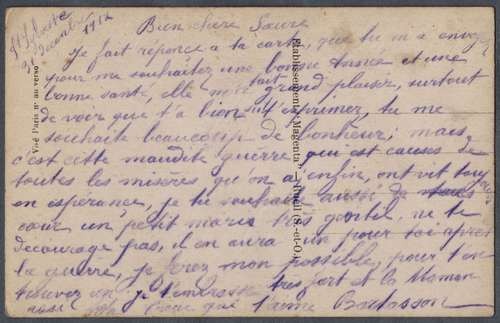 31 Decembre 1917
Bien chère Sœure
Je fait réponce a ta carte, que tu m'a envoyé
pour me souhaitez une bonne Année et une
bonne santé, elle m'a fait grand plaisir, surtout
de voir que t'a bien su t'exprimer, tu me
souhaite beaucoup de bonheur, mais
c'est cette maudite guèrre, qui est causes de
toutes les misères qu'on a, enfin, ont vit touj
en espérance, je tu souhaite aussi de
cœur un petit maris très gentil, ne te
décourage pas, il en aura un pour toi après
la guèrre, je ferez mon possible, pour t'en
trouver un, je t'embrasse très fort et la Maman
aussi que t'aime
Visé Paris nº au verso
Etablissements "Magenta" - (S.-et-O.)